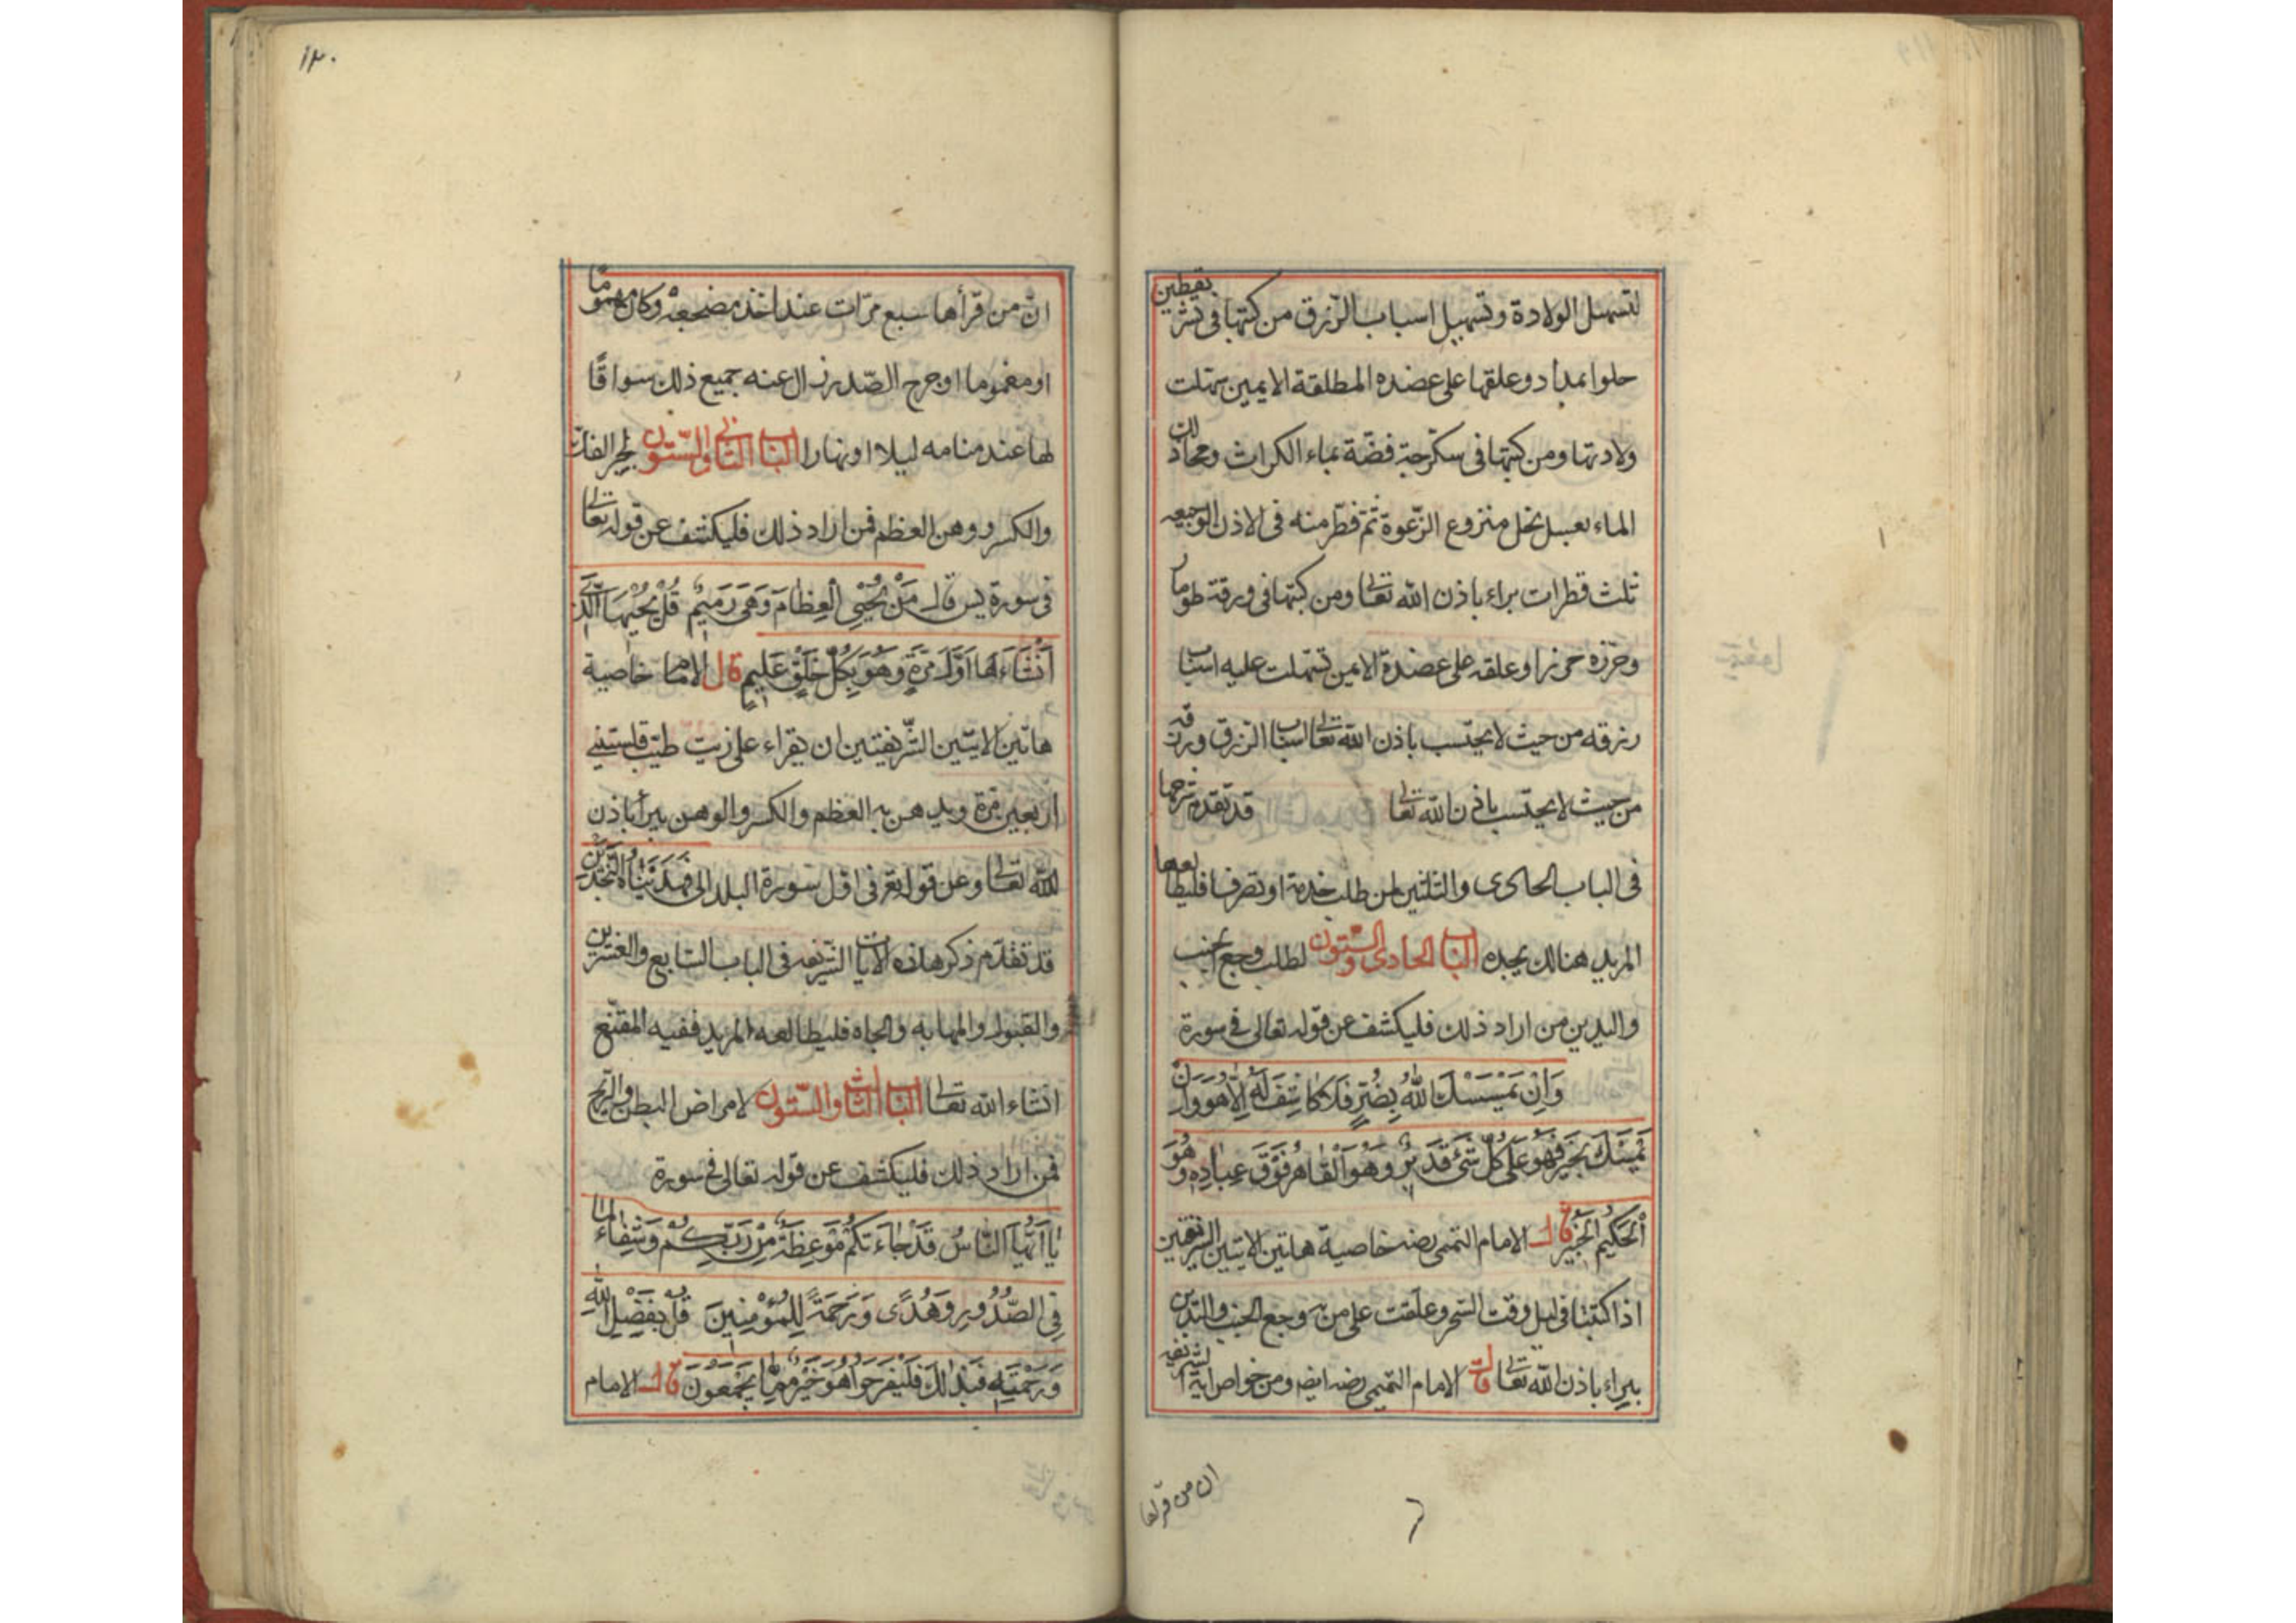 لتسهيل الولادة وتسهيل اسباب الرزق من كتبها في قشر يقطين
حلوا بمداد وعلقها على عضده المطلقة الايمين سهلت
ولادتها ومن كتبها في سكرجة فضة بماء الكراث ومحا ذلك
الماء بعسل نحل منزوع الرغوة ثم قطر منه في الاذن الوجيعه
ثلث قطرات براء باذن الله تعالى ومن كتبها في ورقة طومار
وحرزه حرزا وعلقه على عضدة الايمن تسهلت عليه اسباب
رزقه من حيث لا يحتسب باذن الله تعالى اسباب الرزق ورزقه
من حيث لا يحتسب باذن الله تعالى قد تقدم شرحها
في الباب الحادى والثلثين لمن طلب خدمة او تصرفا فليطالعها
المريد هنالك يجده الباب الحادى والستون لطلب وجع الجنب
واليدين من اراد ذلك فليكشف عن قوله تعالى في سورة
وَاِنْ يَمْسَسْكَ اللهُ بِضُرٍّ فَلَا كَاشِفَ لَهُ اِلَّا هُوَ وَاِنْ
يَمْسَسْكَ بِخَيْرٍ فَهُوَ عَلَى كُلِّ شَئٍ قَدِيْرٌ وَهُوَ اَلْقَاهِرُ فَوْقَ عِبَادِهِ وَهُوَ
اَلْحَكِيْمُ الْخَبِيْرُ قال الامام التميمى رضه خاصية هاتين الايتين الشريفتين
اذا كتبتا في ليل وقت السحر وعلقت على من به وجع الجنب واليدين
يبراء باذن الله تعالى قال الامام التميمى رضه ايضه ومن خواص اية الشريفه
ان من قرأها
١٢٠
ان من قرأها سبع مرات عند اخذ مضجعه وكان مهموما
او مغموما او حرج الصدر زال عنه جميع ذلك سوا قا
لها عند منامه ليلا او نهارا الباب الثانى والستون لجبر الفك
والكسر ووهن العظم فمن اراد ذلك فليكشف عن قوله تعالى
في سورة يس قال مَنْ يُحْيِي اْلعِظَامَ وَهِيَ رَمِيْمٌ قُلْ يُحْيِيْهَا الَّذِيْ
اَنْشَاءَهَا اَوَّلَ مَرَّةٍ وَهُوَ بِكُلِّ خَلْقٍ عَلِيْمٍ قال الامام خاصية
هاتين الايتين الشريفتين ان يقراء على زيت طيب
اربعين مرة ويدهن به العظم والكسر والوهن يبرأ باذن
الله تعالى وعن قوله تعر في اول سورة البلد الى فهديناه النجدين
قد تقدم ذكر هاذه الايات الشريفه في الباب السابع والعشرين
والقبول والمهابه والجاه فليطالعه المريد ففيه المقنع
انشاء الله تعالى الباب الثالث والستون لامراض البطن والريح
فمن اراد ذلك فليكشف عن قوله تعالى في سورة
يَا اَيُّهَا النَّاسُ قَدْ جَاءَتْكُمْ مَوْعِظَةٌ مِنْ رَبِّكُمْ وَشِفَاءٌ لِمَا
فِي الصُّدُوْرِ وَهُدًى وَرَحْمَةً لِلْمُؤْمِنِيْنَ قُلْ بِفَضْلِ اللهِ
وَرَحْمَتِهِ فَبِذَالِكَ فَلْيَفْرَحُوا هُوَ خَيْرٌ مِمَّا يَجْمَعُوْنَ قال الامام